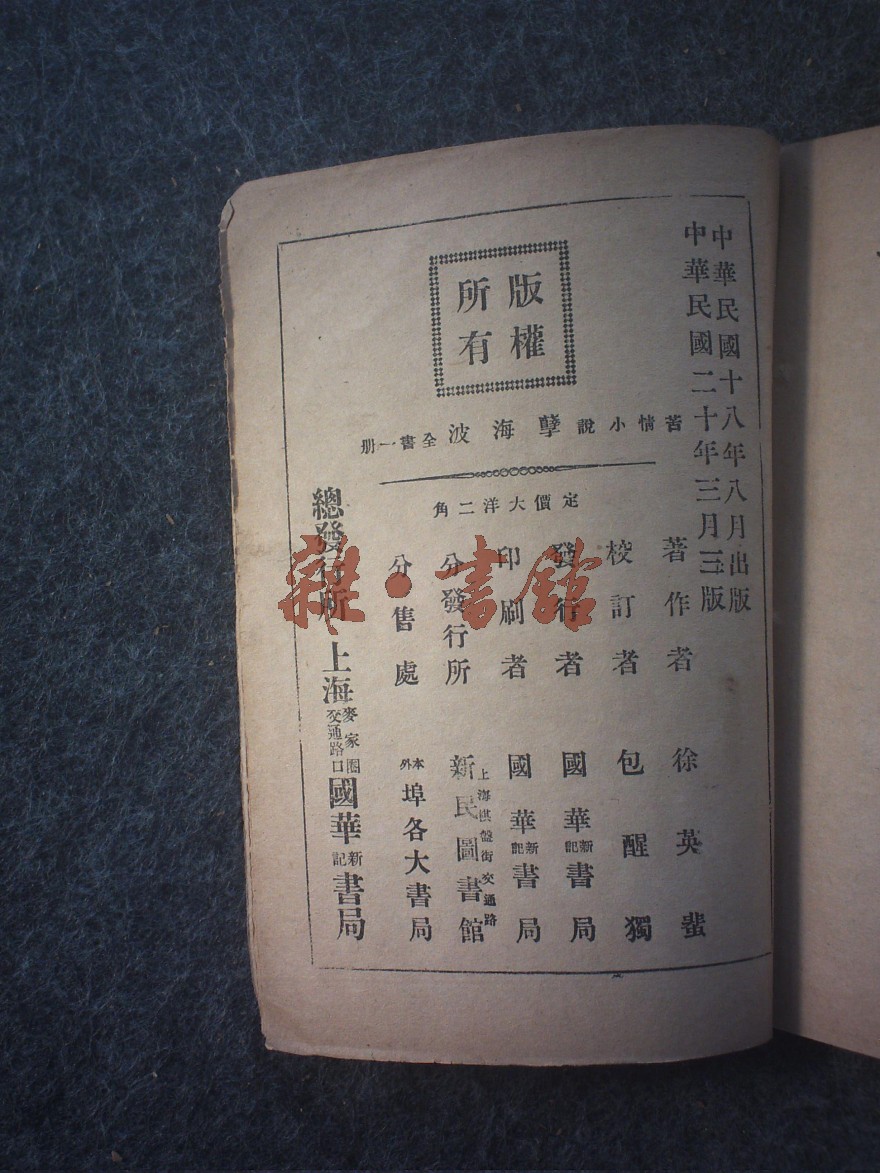 中華民國十八年八月出版
中華民國二十年三月三版
版權所有
苦情小說 孽海波 全書一册
定價大洋二角
著作者 徐英蜚
校訂者 包醒獨
發行者 國華新記書局
印刷者 國華新記書局
分發行所 上海棋盤街交通路 新民圖書館
分售處 本外埠各大書局
總發行所 上海麥家圈交通路口 國華新記書局
雜·書館